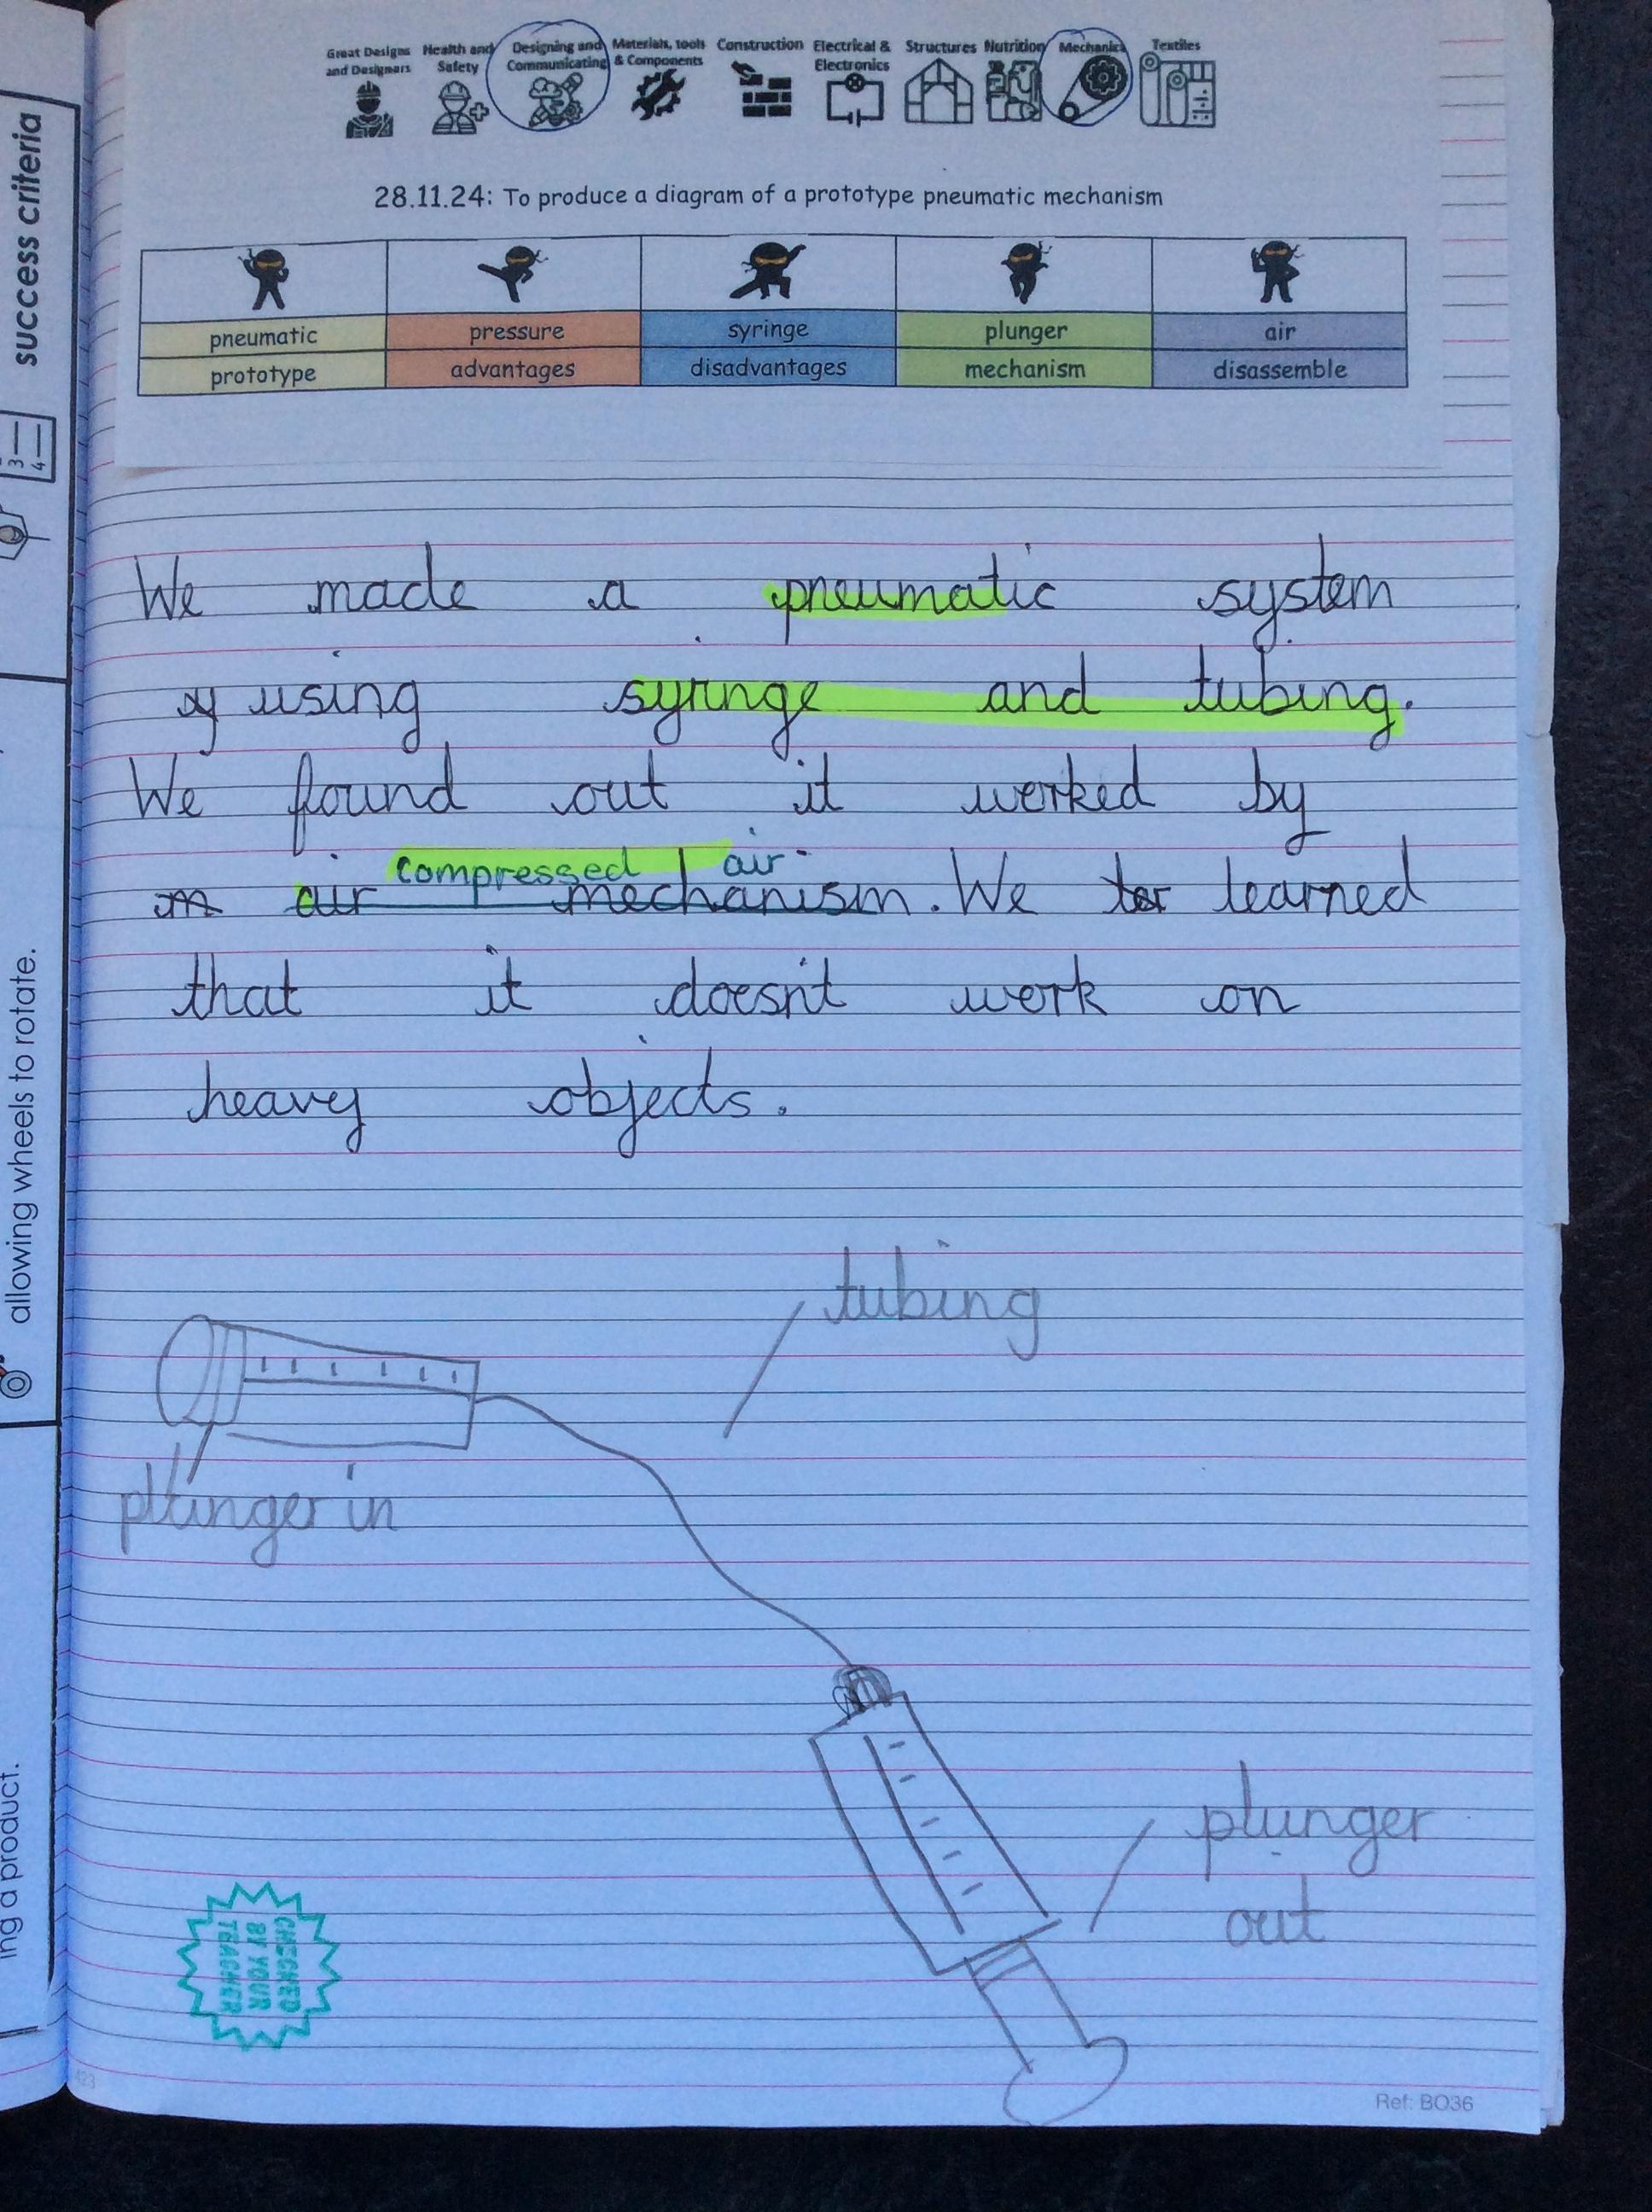 Great Designs and Designers
Health and Safety
Designing and Communicating
Materials, tools & Components
Construction
Electrical & Electronics
Structures
Nutrition
Mechanics
Textiles
28.11.24: To produce a diagram of a prototype pneumatic mechanism
pneumatic pressure syringe plunger air
prototype advantages disadvantages mechanism disassemble
We made a pneumatic system
using syringe and tubing.
We found out it worked by
compressed air
air mechanism. We learned
that it doesn't work on
heavy objects.
tubing
plunger in
plunger
out
CHECKED
BY YOUR
TEACHER
Ref: BO36
423
success criteria
3
4
allowing wheels to rotate.
ing a product.